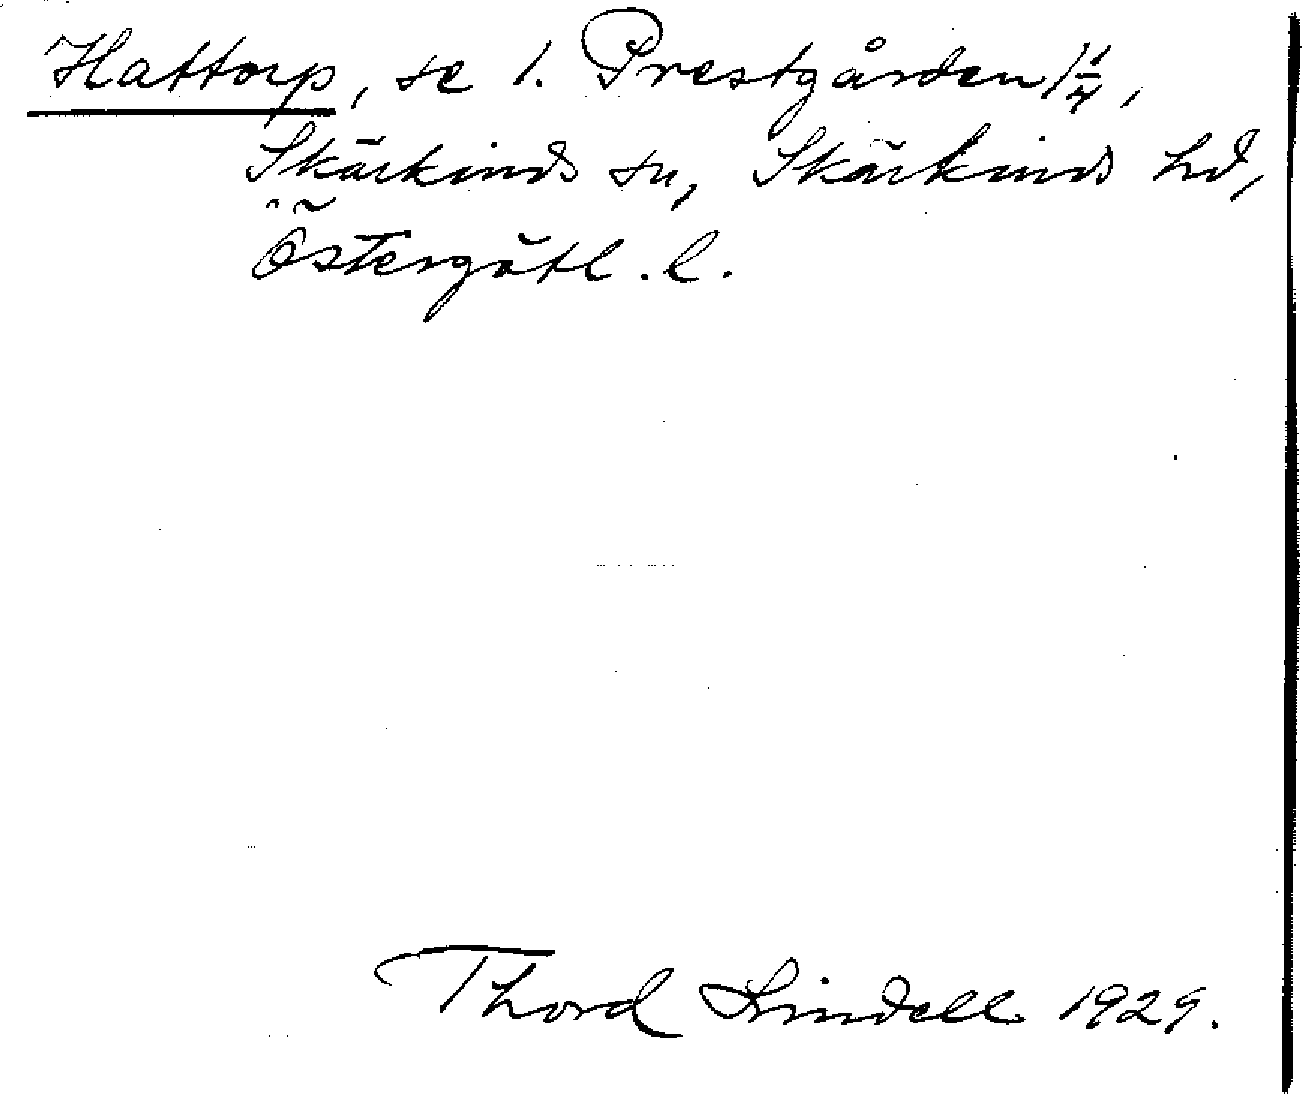 Hattorp, se 1. Prestgården 1 1/4,
Skärkinds sn, Skärkinds hd,
Östergötl. l.
Thord Lindell 1929.